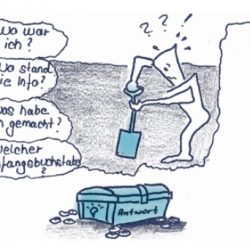 Wo war
ich?
? ? !
Wo stand
ie Info?
as habe
h gemacht?
elcher
nfangsbuchstabe
?
Antwort